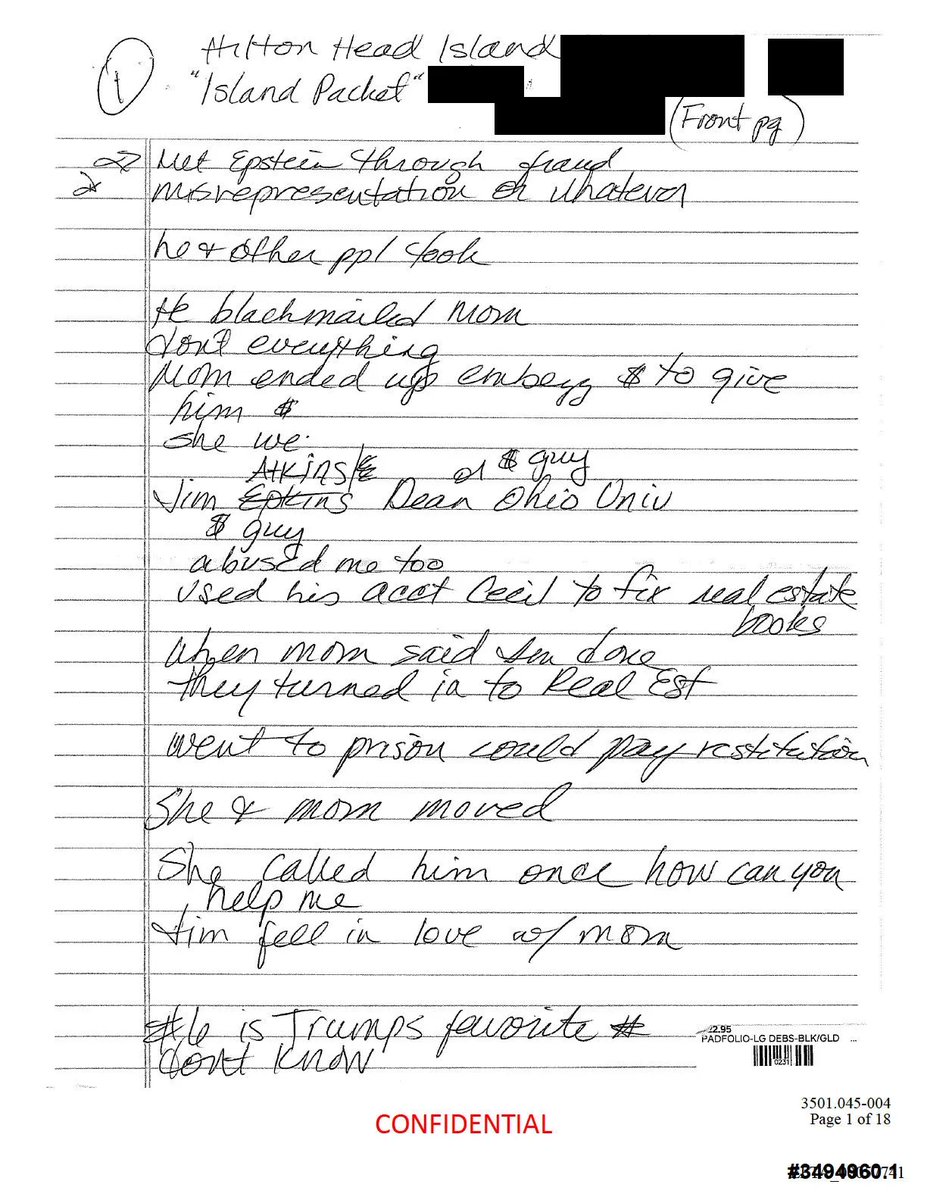 1
Hilton Head Island
"Island Packet"
(Front pg)
Met Epstein through fraud
misrepresentation or whatever
he + other ppl took
He blackmailed Mom
don't everything
Mom ended up embezz $ to give
him $
she we
Atkins or $ guy
Jim Epkins Dean Ohio Univ
$ guy
abused me too
used his acct Cecil to fix real estate
books
when mom said I'm done
they turned in to Real Est
went to prison could pay restitution
She & mom moved
She called him once how can you
help me
Jim fell in love w/ mom
#6 is Trumps favorite #
dont know
22.95
PADFOLIO-LG DEBS-BLK/GLD
3501.045-004
Page 1 of 18
CONFIDENTIAL
#3494960.1